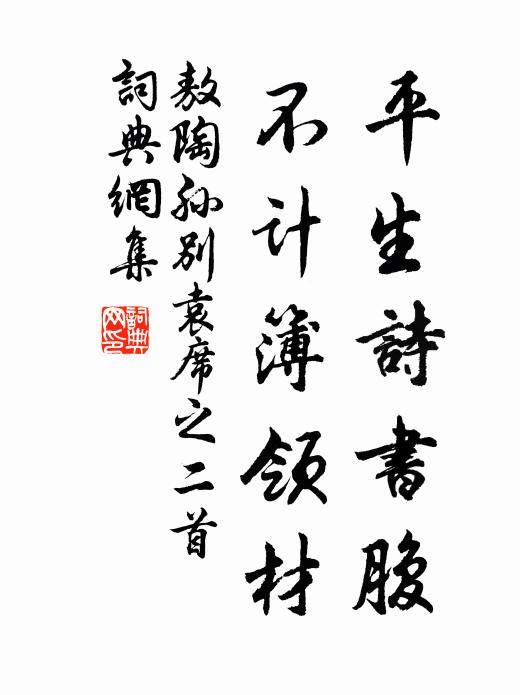 平生詩書腹
不计簿領材
敖陶孙別袁席之二首
詞典網集
詞典网印